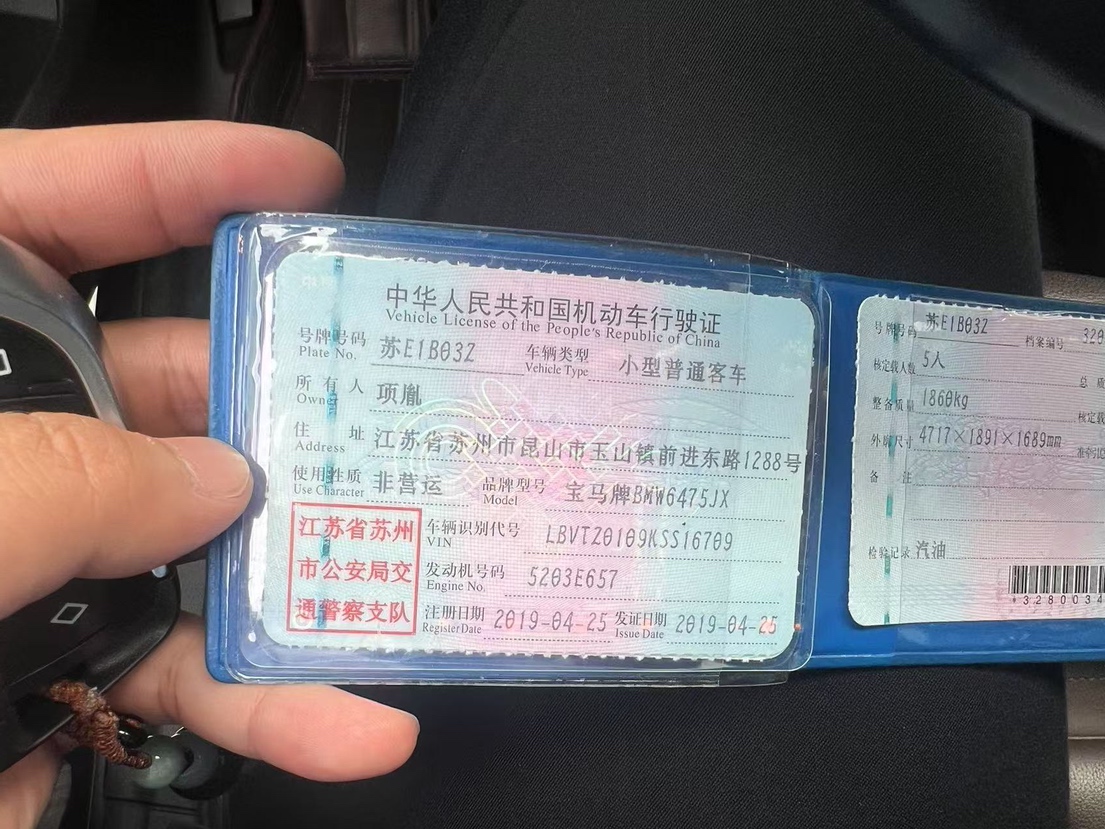 中华人民共和国机动车行驶证
Vehicle License of the People's Republic of China
号牌号码 苏E1B03Z 车辆类型 小型普通客车
Plate No. Vehicle Type
所有人 项胤
Owner
住址 江苏省苏州市昆山市玉山镇前进东路1288号
Address
使用性质 非营运 品牌型号 宝马牌BMW6475JX
Use Character Model
江苏省苏州
市公安局交
通警察支队
车辆识别代号 LBVTZ0109KSS16709
VIN
发动机号码 5203E657
Engine No.
注册日期 2019-04-25 发证日期 2019-04-25
Register Date Issue Date
号牌号码 苏E1B03Z 档案编号 320
核定载人数 5人 总质
整备质量 1860kg 核定载
外廓尺寸 4717×1891×1689mm 准牵引
备注
检验记录 汽油
*3280034